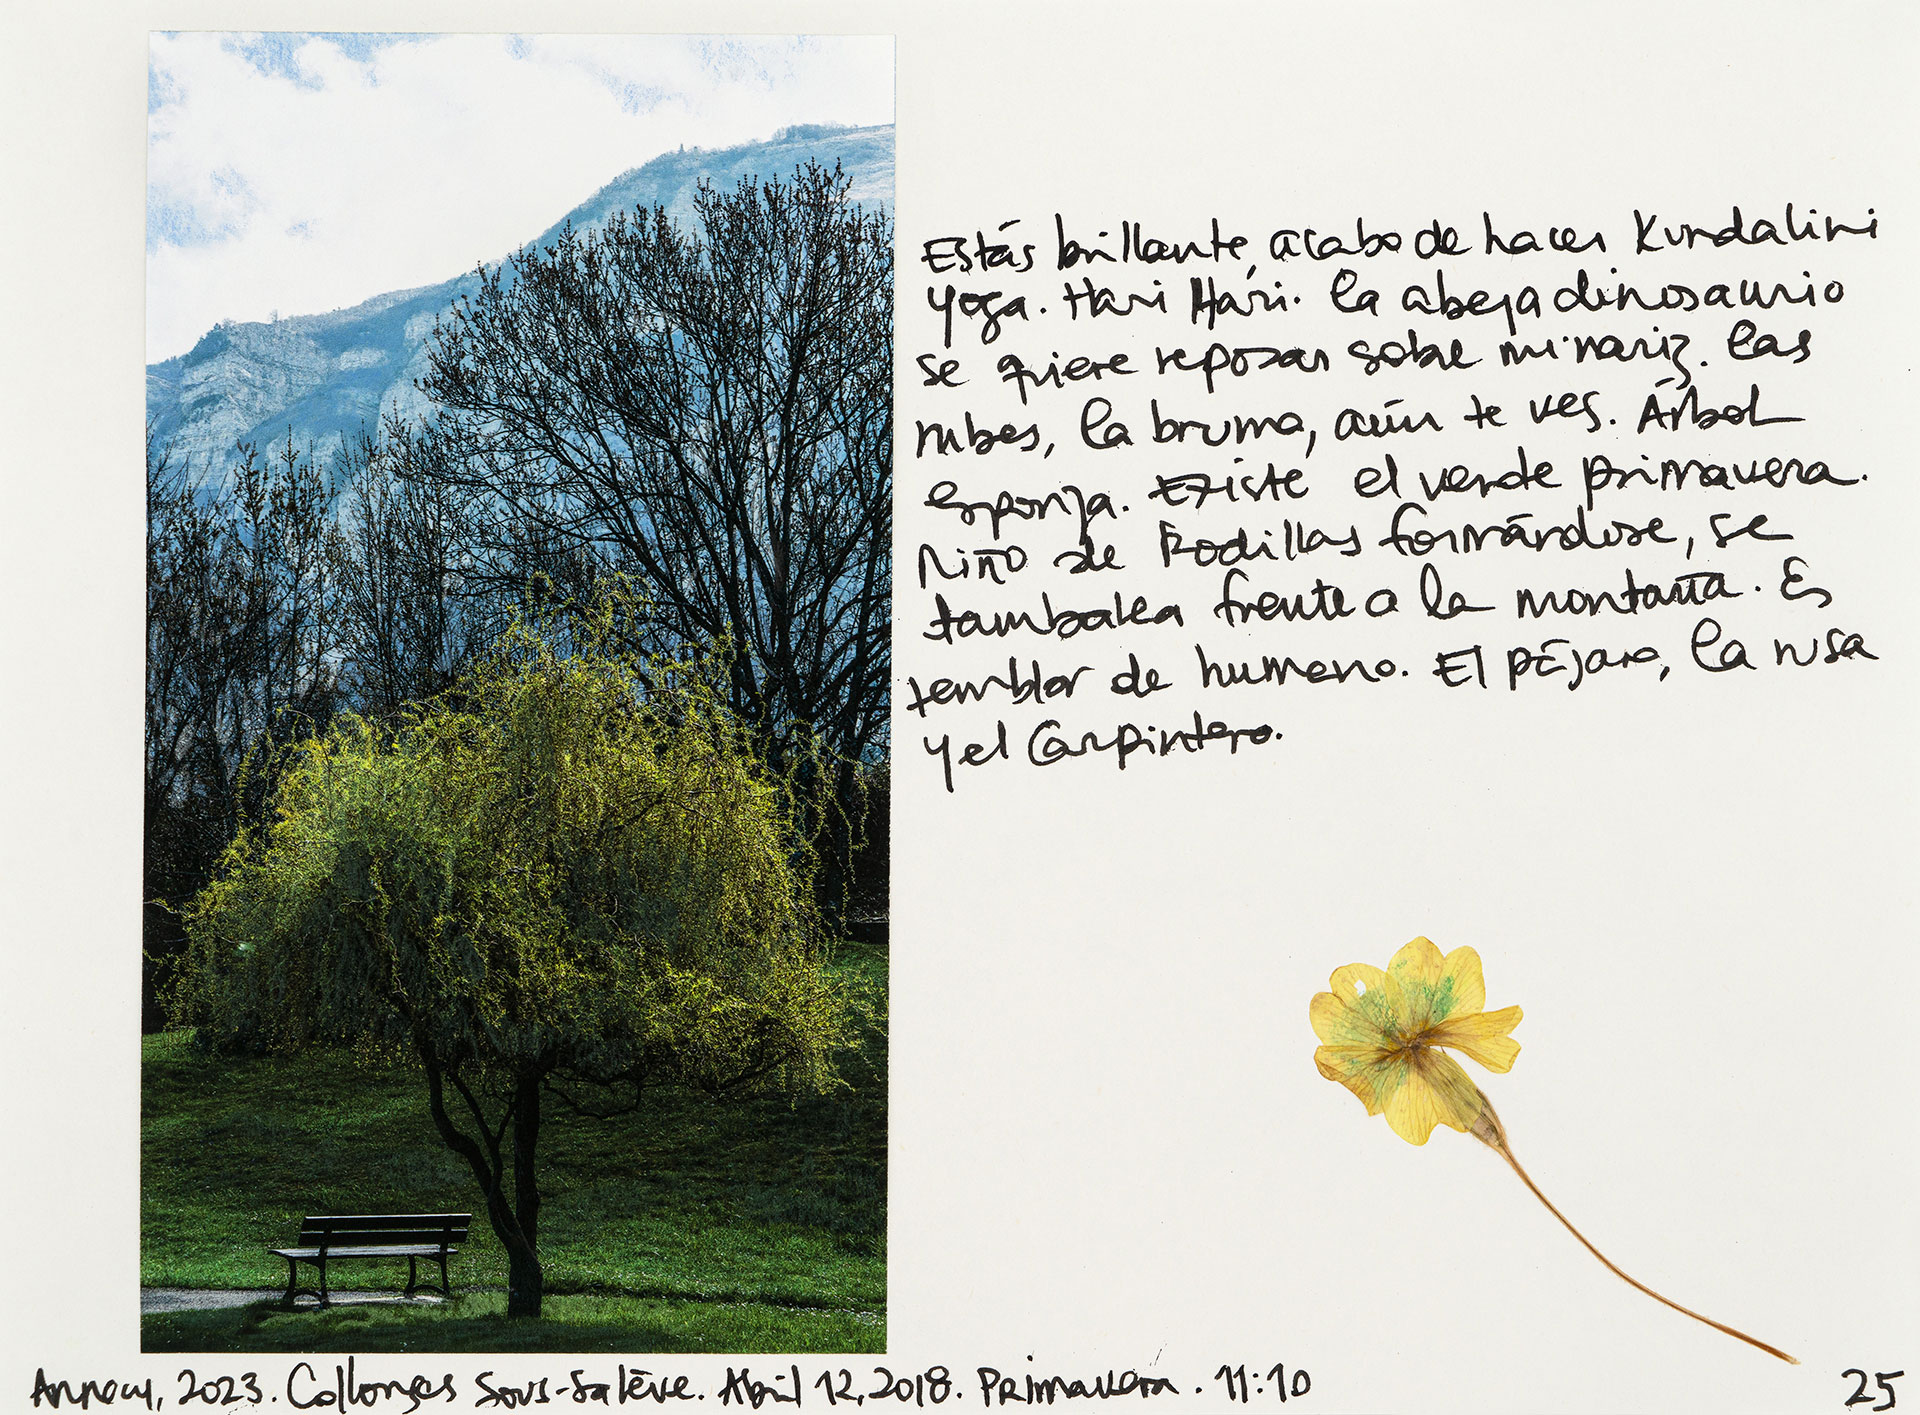 Estás brillante, acabo de hacer Kundalini
Yoga. Hari Hari. la abeja dinosaurio
se quiere reposar sobre mi nariz. las
nubes, la bruma, aún te ves. Árbol
esponja. Existe el verde primavera.
Niño de Rodillas formándose, se
tambalea frente a la montaña. Es
temblor de humano. El pájaro, la rusa
y el Carpintero.
Annecy, 2023. Collonges Sous-Salève. Abril 12, 2018. Primavera. 11:10
25